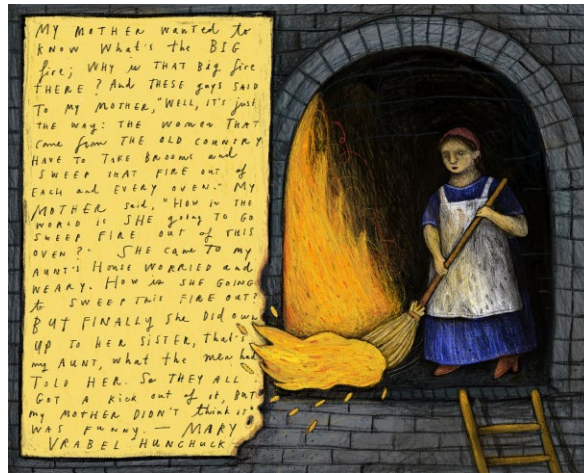 MY MOTHER wanted to
KNOW What's the BIG
fire; WHY is THAT Big fire
THERE? And THESE guys SAID
To my MOTHER, "WELL, IT'S just
THE WAY: THE WOMEN THAT
came from THE OLD COUNTRY
HAVE TO TAKE BROOMS and
SWEEP THAT FIRE OUT of
EACH and EVERY OVEN." MY
MOTHER said, "HOW in THE
WORLD is SHE going TO GO
SWEEP FIRE OUT OF THIS
OVEN?" SHE came TO my
AUNT'S HOUSE WORRIED and
WEARY. HOW is SHE GOING
to SWEEP THIS FIRE OUT?
BUT FINALLY She DiD own
UP TO HER SISTER, THAT'S
my AUNT, what the men had
TOLD HER. So THEY ALL
GOT A KICK OUT of it, BUT
my MOTHER DIDN'T think it
WAS FUNNY. — MARY
VRABEL HUNCHUCK